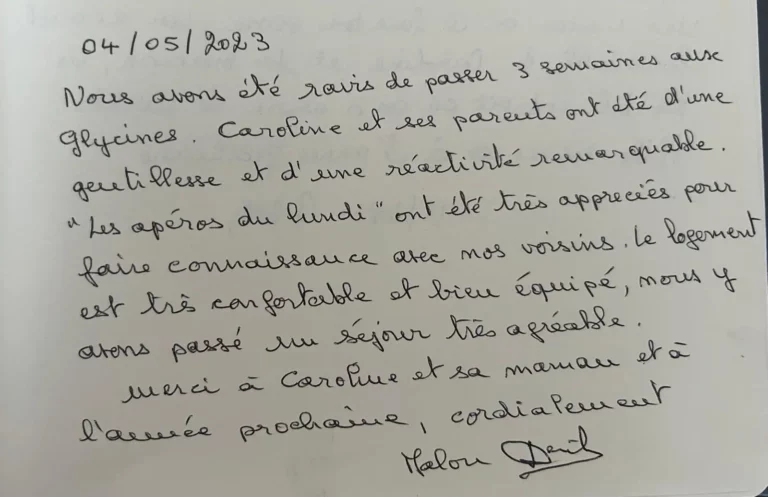 04/05/2023
Nous avons été ravis de passer 3 semaines aux
Glycines. Caroline et ses parents ont été d'une
gentillesse et d'une réactivité remarquable.
"Les apéros du lundi" ont été très appreciés pour
faire connaissance avec nos voisins. Le logement
est très confortable et bien équipé, nous y
avons passé un séjour très agréable.
Merci à Caroline et sa maman et à
l'année prochaine, cordialement
Malou